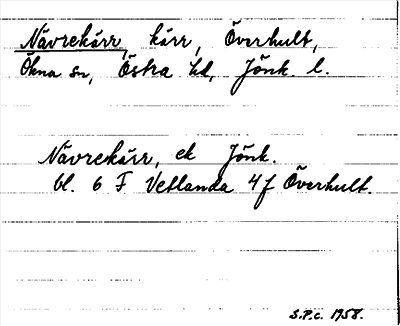 Nävrekärr, kärr, Överhult,
Ökna sn, Östra hd, Jönk. l.
Nävrekärr, ek Jönk.
bl. 6 F Vetlanda 4f Överhult.
S.P.c. 1958.